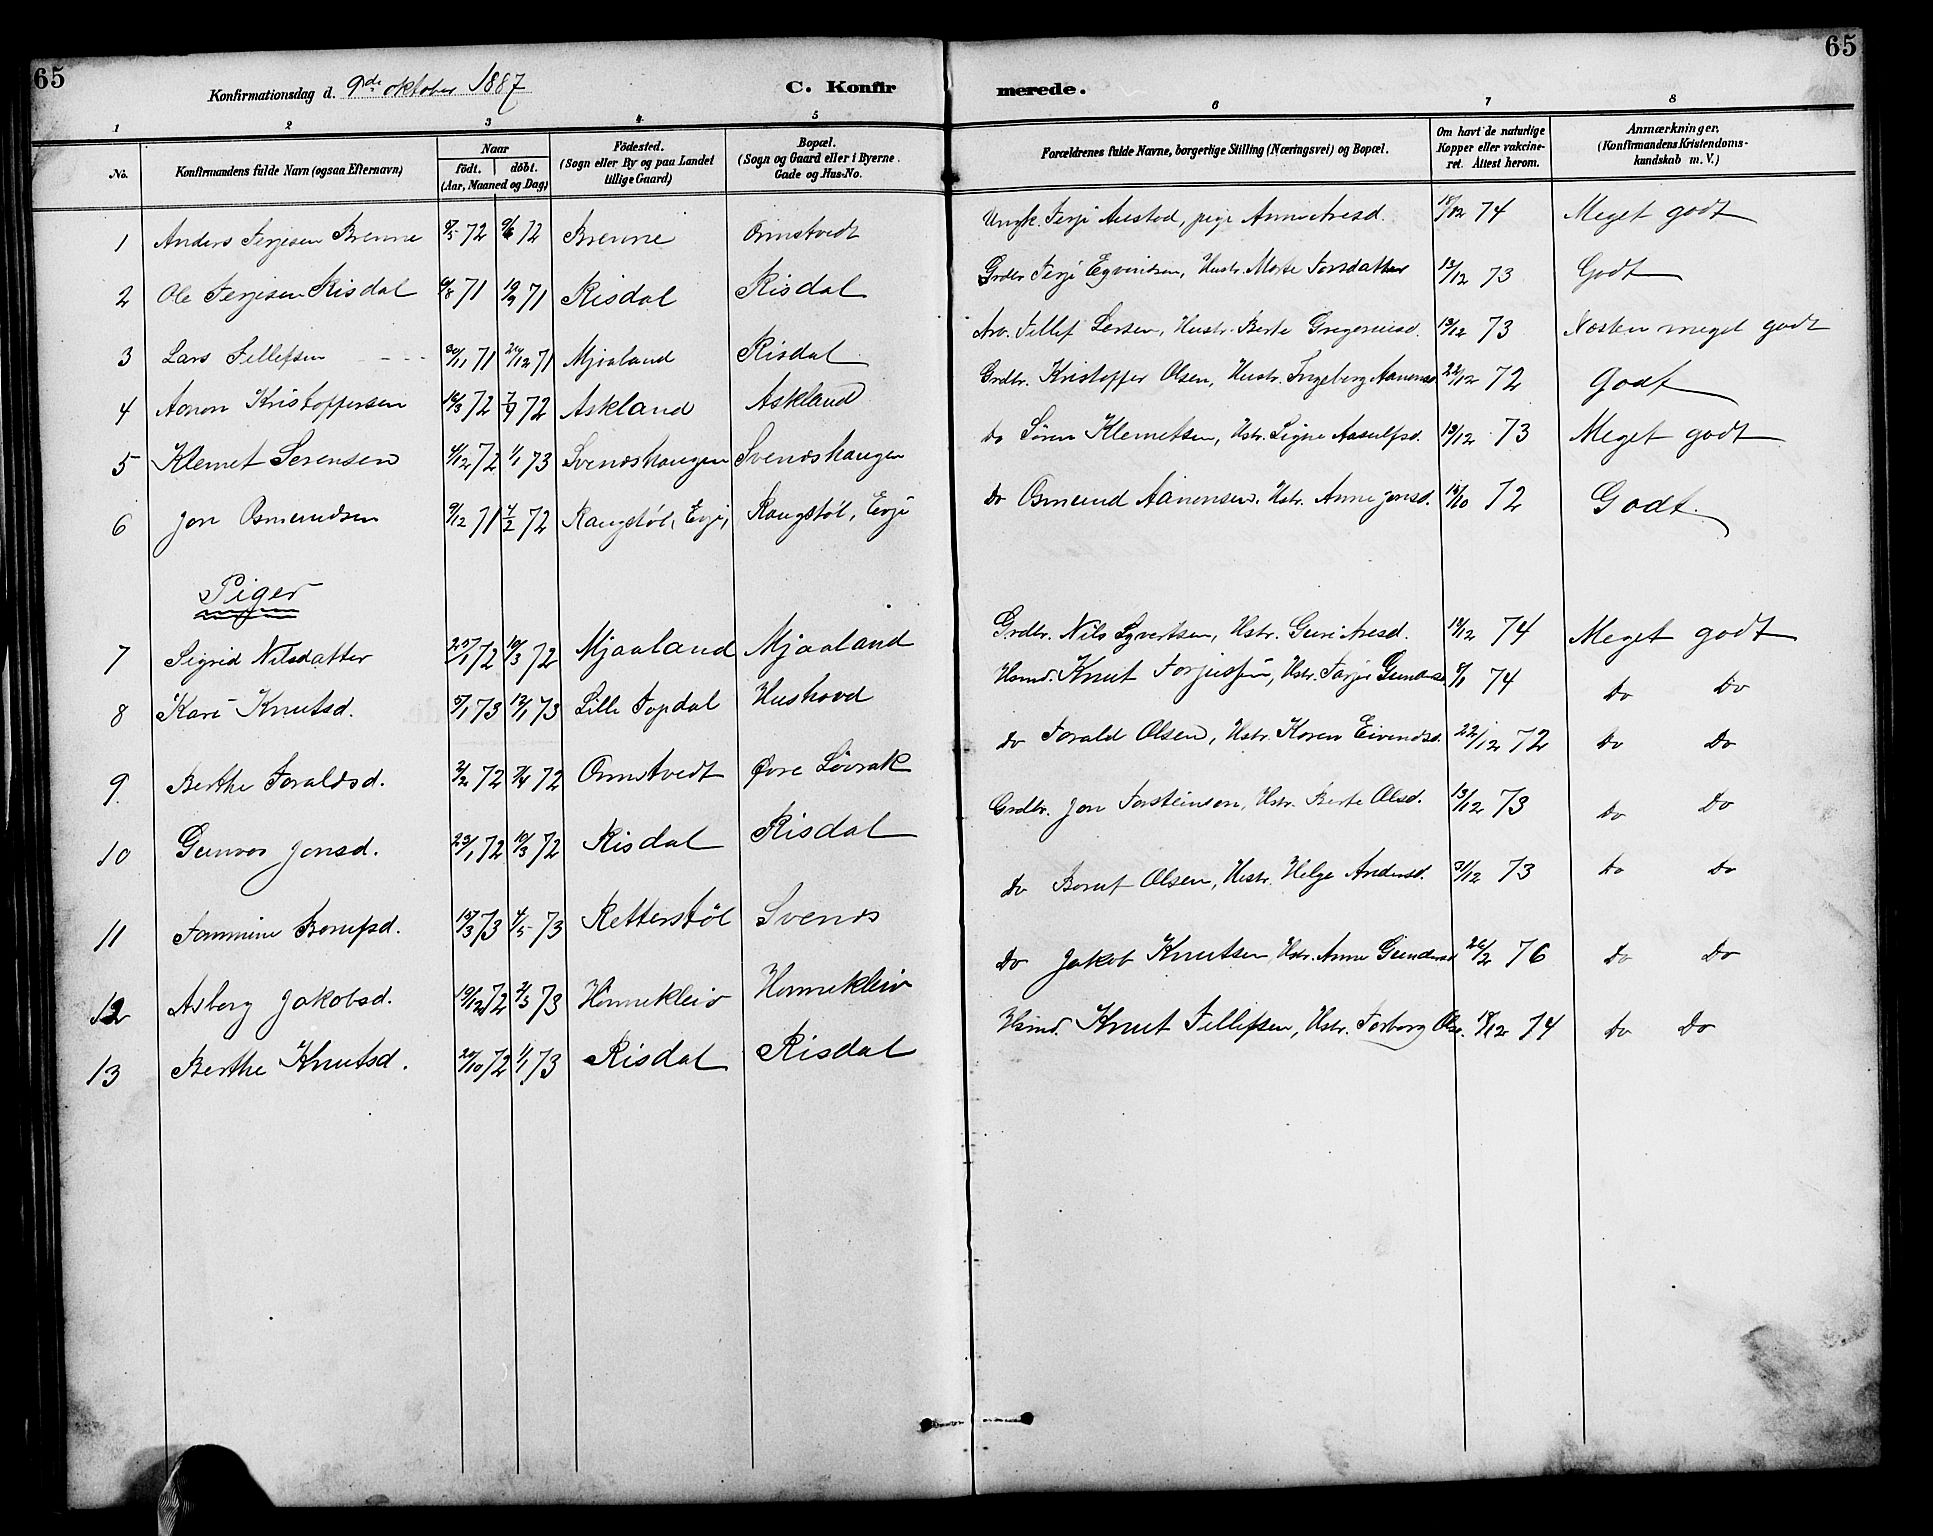 65
65
Konfirmationsdag d. 9de oktober 1887
C. Konfirmerede.
1 2 3 4 5 6 7 8
No. Konfirmandens fulde Navn (ogsaa Efternavn) Naar født. døbt. (Aar, Maaned og Dag) Födested. (Sogn eller By og paa Landet tillige Gaard) Bopæl. (Sogn og Gaard eller i Byerne. Gade og Hus-No. Forældrenes fulde Navne, borgerlige Stilling (Næringsvei) og Bopæl. Om havt de naturlige Kopper eller vakcineret. Attest herom. Anmærkninger, (Konfirmandens Kristendomskundskab m. V.)
1 Anders Terjesen Brenne 72 9/6 72 Brenne Ormstvedt Ungk. Terje Austad, pige Anne Aresd. 18/12 74 Meget godt
2 Ole Terjesen Risdal 6/8 71 71 Risdal Risdal Grdbr. Terje Eyvindsen, Hustr. Marte Torsdatter 13/12 73 Godt
3 Lars Tellefsen 30/11 71 26/12 71 Mjaaland Risdal Arb. Tellef Larsen, Hustr. Berte Gregoriusd. 13/12 73 Næsten meget godt
4 Aanon Kristoffersen 16/3 72 7/9 72 Askland Askland Grdbr. Kristoffer Olsen, Hustr. Ingeborg Aanensd. 22/12 72 Godt
5 Klemet Sørensen 4/12 72 1/1 73 Svendshaugen Svendshaugen do Søren Klemetsen, Hstr. Signe Aasulfsd. 13/12 73 Meget godt
6 Jon Osmundsen 9/12 71 4/2 72 Raugstøl, Evje, Raugstøl, Evje do Osmund Aanensen. Hstr. Anne Jonsd. 16/10 72 Godt.
Piger
7 Sigrid Nilsdatter 25/1 72 10/3 72 Mjaaland Mjaaland Grdbr. Nils Syvertsen, Hstr. Guri Aresd. 18/12 74 Meget godt
8 Kari Knutsd. 5/1 73 12/1 73 Lille Topdal Hushovd Hsmd. Knut Torjussen, Hstr. Torjer Gundersd. 74 Do Do
9. Berthe Toraldsd. 2/2 72 7/4 72 Ormstvedt Øvre Løvrak do Torald Olsen, Hstr. Karen Eivindsd. 22/12 72 Do Do
10 Gunvor Jonsd. 23/1 72 10/3 72 Risdal Risdal Grdbr. Jon Torsteinsen, Hstr. Berte Olsd. 13/12 73 Do Do
11 Tommine Borufsd. 73 4/5 73 Retterstøl Svends do Boruf Olsen, Hustr. Helge Andersd. 31/12 73 Do Do
12 Asborg Jakobsd. 19/12 72 2/3 73 Honnekleiv Honnekleiv Do Jakob Knutsen Hstr. Anne Gundersd. 26/2 76 Do Do
13 Berthe Knutsd. 20/10 72 1/1 73 Risdal Risdal Hsmd. Knut Tellefsen, Hstr. Torborg Olsd. 18/12 74 Do Do